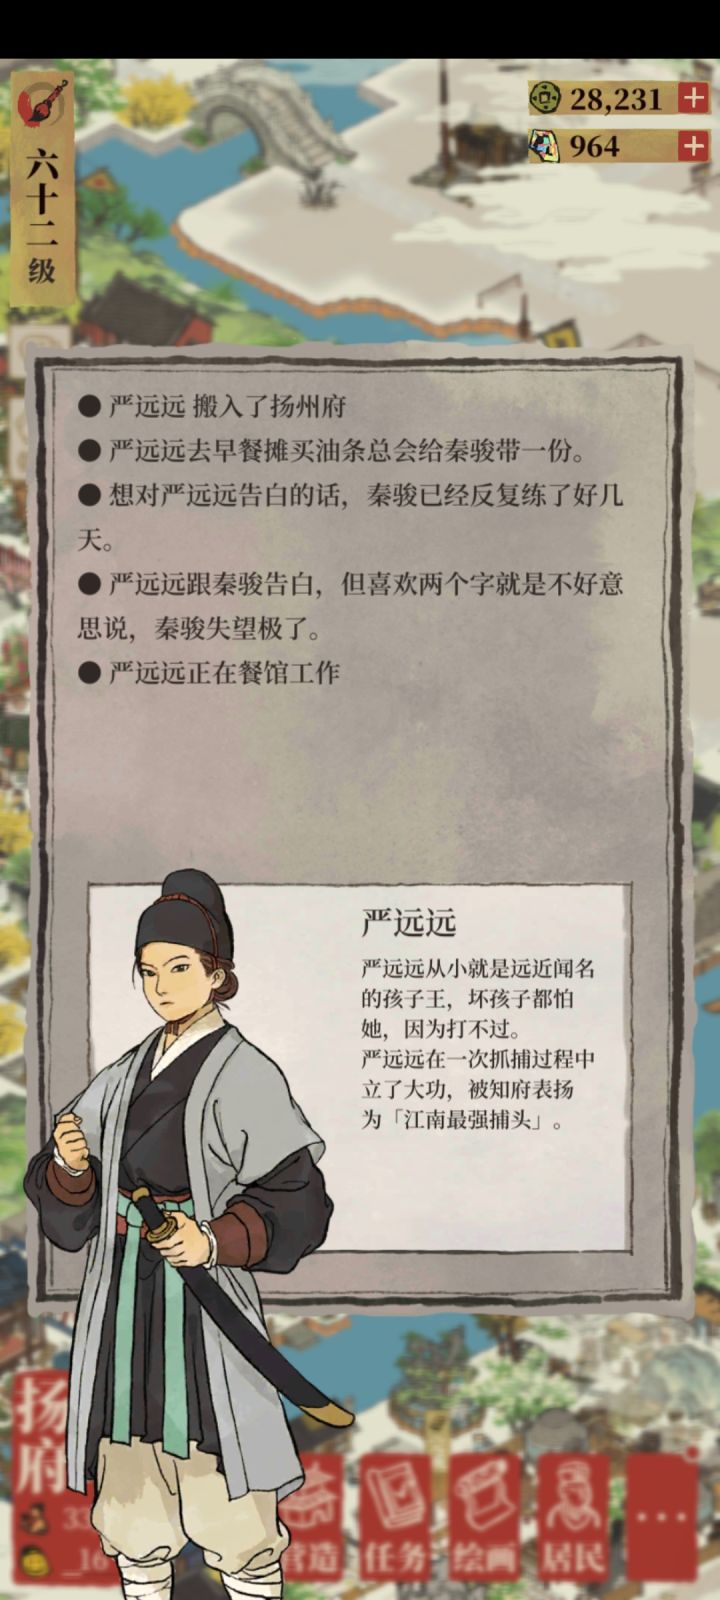 28,231
964
六十二级
● 严远远 搬入了扬州府
● 严远远去早餐摊买油条总会给秦骏带一份。
● 想对严远远告白的话，秦骏已经反复练了好几
天。
● 严远远跟秦骏告白，但喜欢两个字就是不好意
思说，秦骏失望极了。
● 严远远正在餐馆工作
严远远
严远远从小就是远近闻名
的孩子王，坏孩子都怕
她，因为打不过。
严远远在一次抓捕过程中
立了大功，被知府表扬
为「江南最强捕头」。
营造
任务
绘画
居民